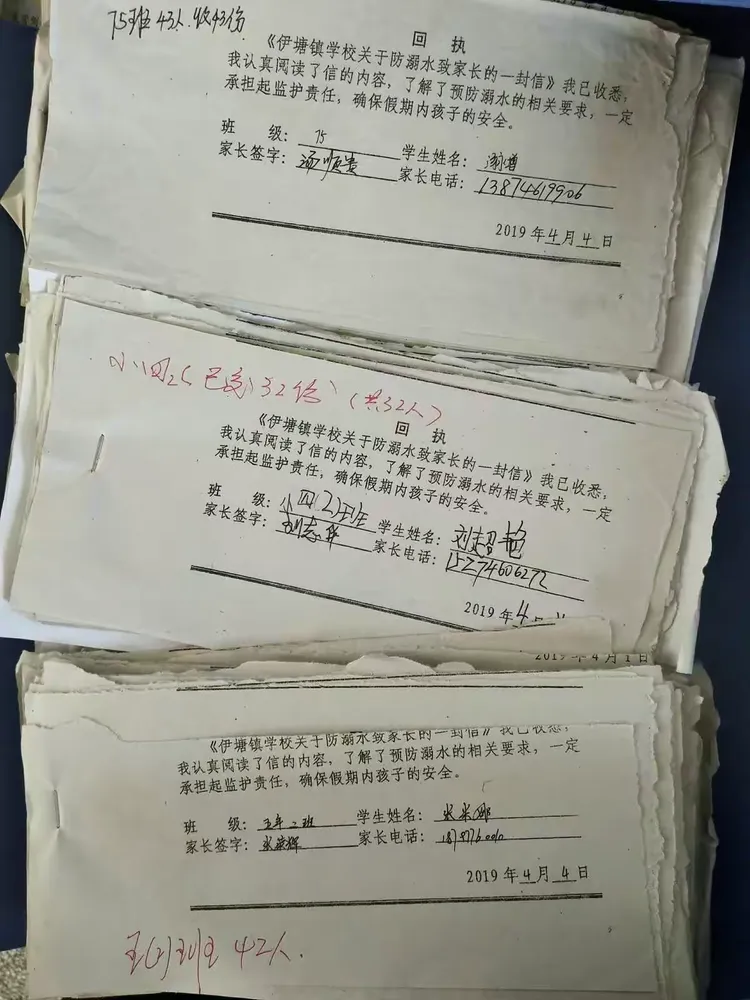 75班 43人.收43份
回 执
《伊塘镇学校关于防溺水致家长的一封信》我已收悉,
我认真阅读了信的内容,了解了预防溺水的相关要求,一定
承担起监护责任,确保假期内孩子的安全。
班 级: 75 学生姓名:
家长签字: 汤顺贵 家长电话: 13874619906
2019年4月4日
小四2(已交)32份(共32人)
回 执
《伊塘镇学校关于防溺水致家长的一封信》我已收悉,
我认真阅读了信的内容,了解了预防溺水的相关要求,一定
承担起监护责任,确保假期内孩子的安全。
班 级: 小四(2)班 学生姓名: 刘超艳
家长签字: 家长电话: 15274606272
2019年4
2019年4月1日
《伊塘镇学校关于防溺水致家长的一封信》我已收悉,
我认真阅读了信的内容,了解了预防溺水的相关要求,一定
承担起监护责任,确保假期内孩子的安全。
班 级: 五年二班 学生姓名:
家长签字: 家长电话:
2019年4月4日
42人.